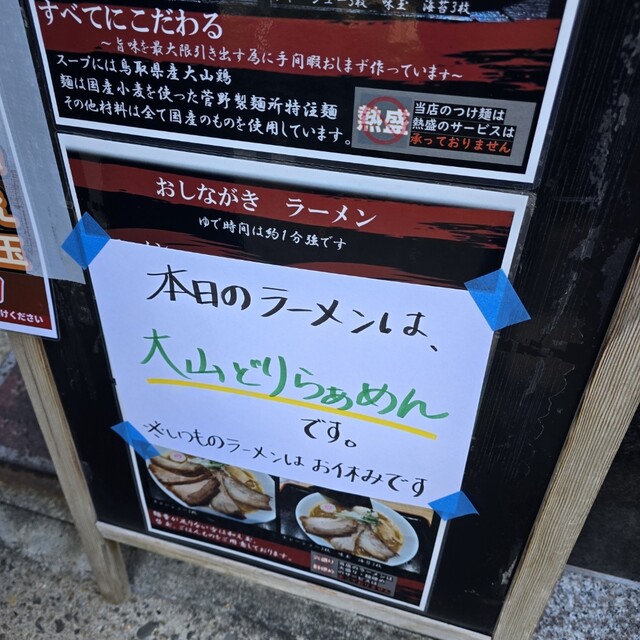 味玉 海苔3枚
すべてにこだわる
～旨味を最大限引き出す為に手間暇おしまず作っています～
スープには鳥取県産大山鶏
麺は国産小麦を使った菅野製麺所特注麺
その他材料は全て国産のものを使用しています。
熱盛
当店のつけ麺は
熱盛のサービスは
承っておりません
おしながき ラーメン
ゆで時間は約1分強です
本日のラーメンは、
大山どりらぁめん
です。
※いつものラーメンはお休みです
玉
ください